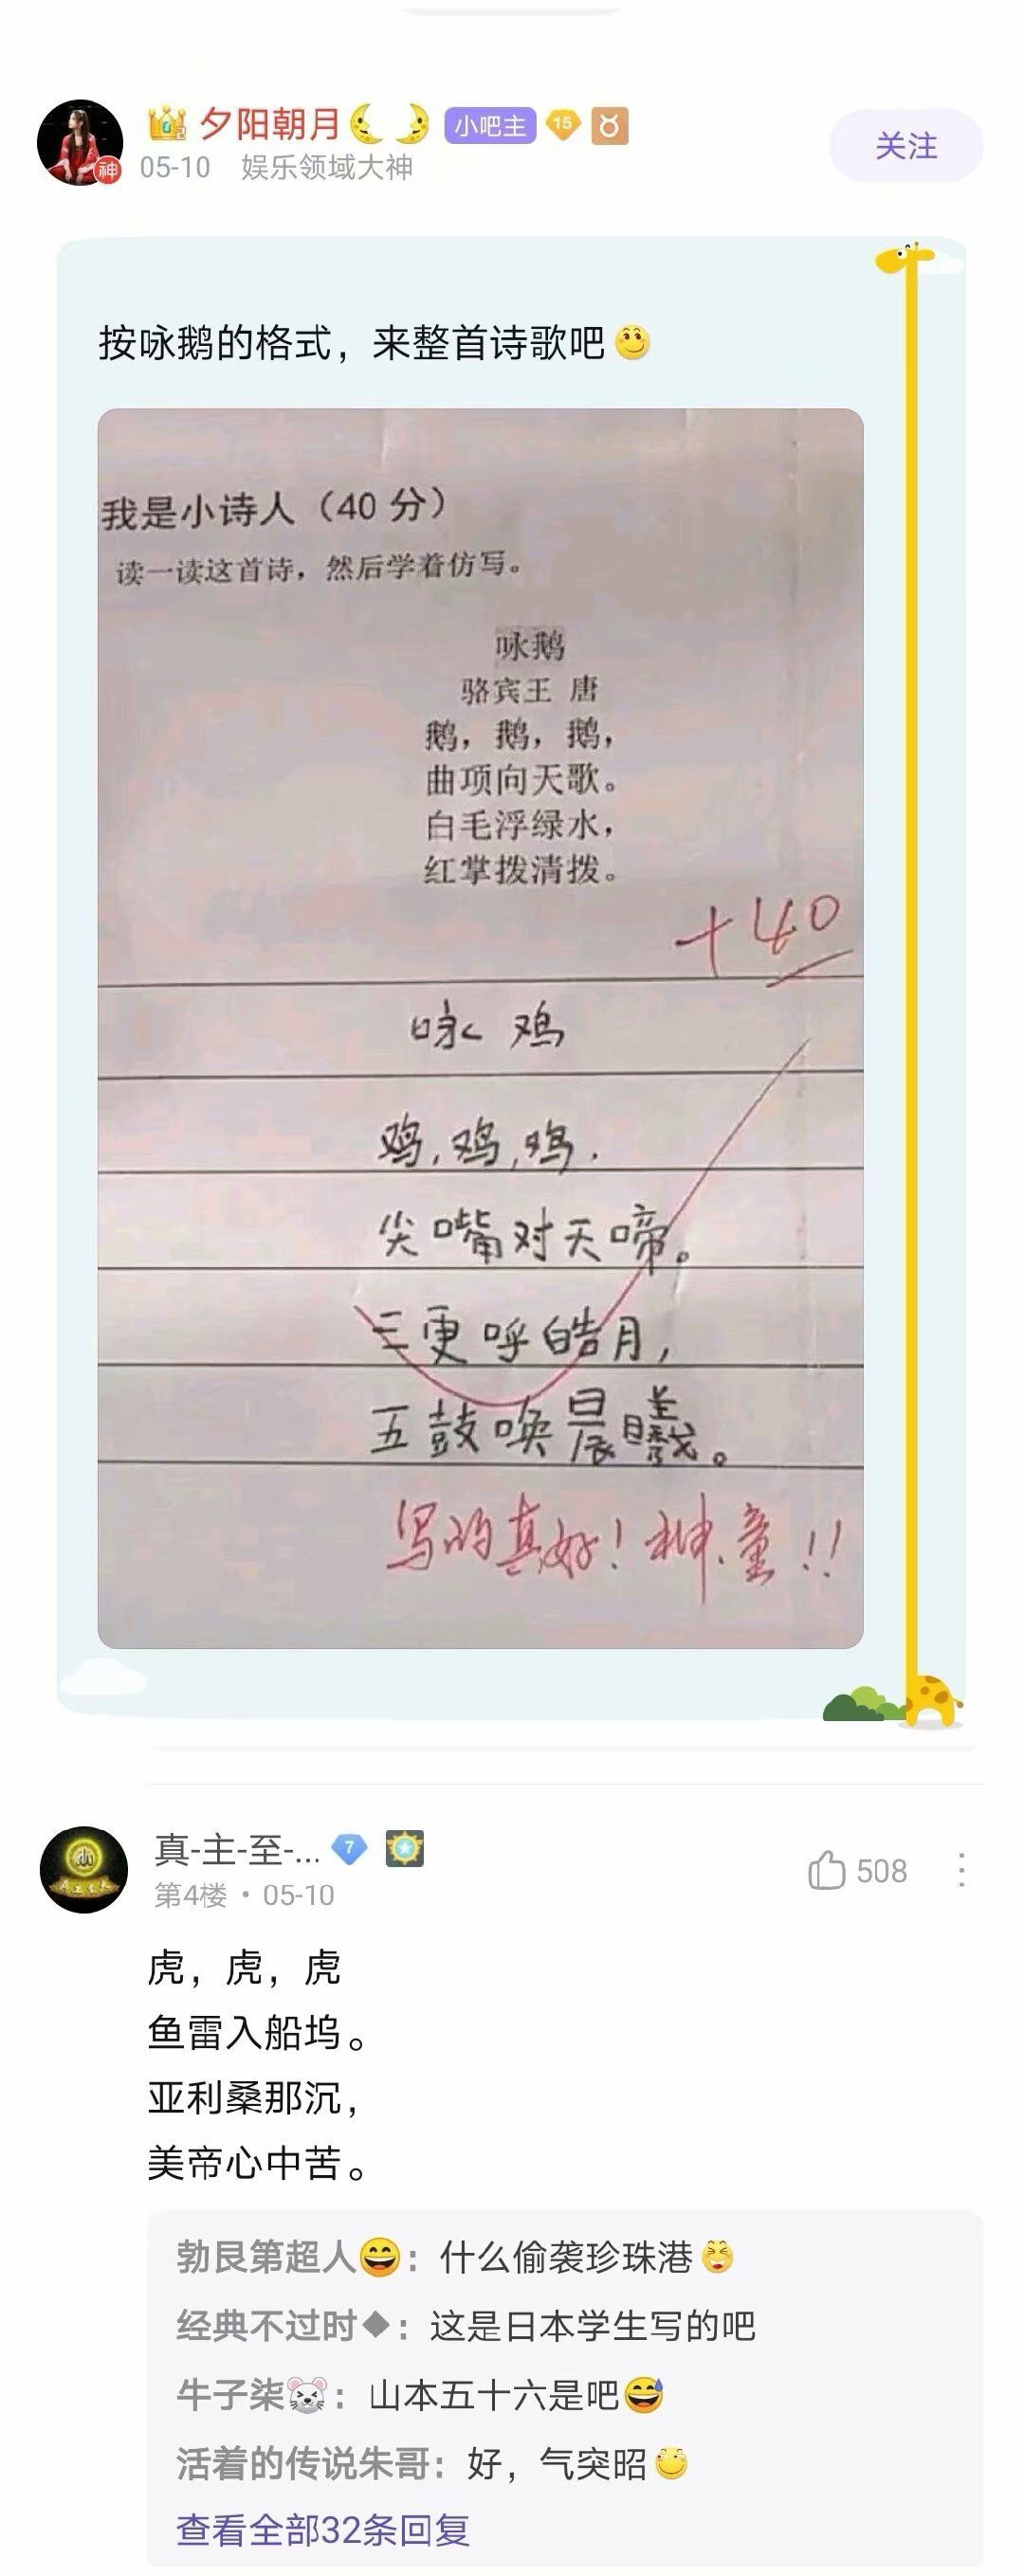 夕阳朝月 小吧主 15
神
05-10 娱乐领域大神
关注
按咏鹅的格式，来整首诗歌吧
我是小诗人（40 分）
读一读这首诗，然后学着仿写。
咏鹅
骆宾王 唐
鹅，鹅，鹅，
曲项向天歌。
白毛浮绿水，
红掌拨清拨。
+40
咏鸡
鸡,鸡,鸡.
尖嘴对天啼。
三更呼皓月,
五鼓唤晨曦。
写的真好！神童！！
真-主-至-... 7
第4楼 · 05-10
508
虎，虎，虎
鱼雷入船坞。
亚利桑那沉，
美帝心中苦。
勃艮第超人😄：什么偷袭珍珠港
经典不过时◆：这是日本学生写的吧
牛子柒🐭：山本五十六是吧😅
活着的传说朱哥：好，气突昭
查看全部32条回复